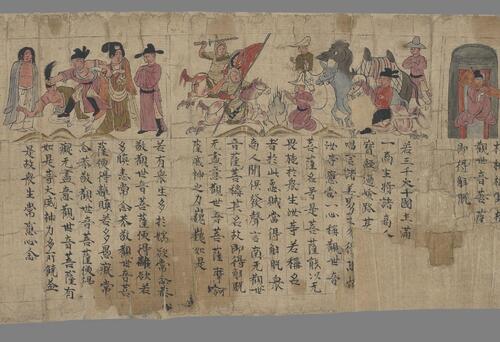 世音菩薩
即得解脫
若三千大千國土滿
一商主將諸商人
寶經過險路其
唱言諸善男子勿得恐怖
汝等應當一心稱觀世音
菩薩名号是菩薩能以无
畏施於衆生汝等若稱名
者於此怨賊當得解脫衆
商人聞俱發聲言南无觀世
音菩薩稱其名故即得解脫
无盡意觀世音菩薩摩訶
薩威神之力巍巍如是
若有衆生多於婬欲常念恭
敬觀世音菩薩便得離欲若
多瞋恚常念恭敬觀世音菩
薩便得離瞋若多愚癡常
念恭敬觀世音菩薩便得
離癡无盡意觀世音菩薩有
如是等大威神力多所饒益
是故衆生常應心念